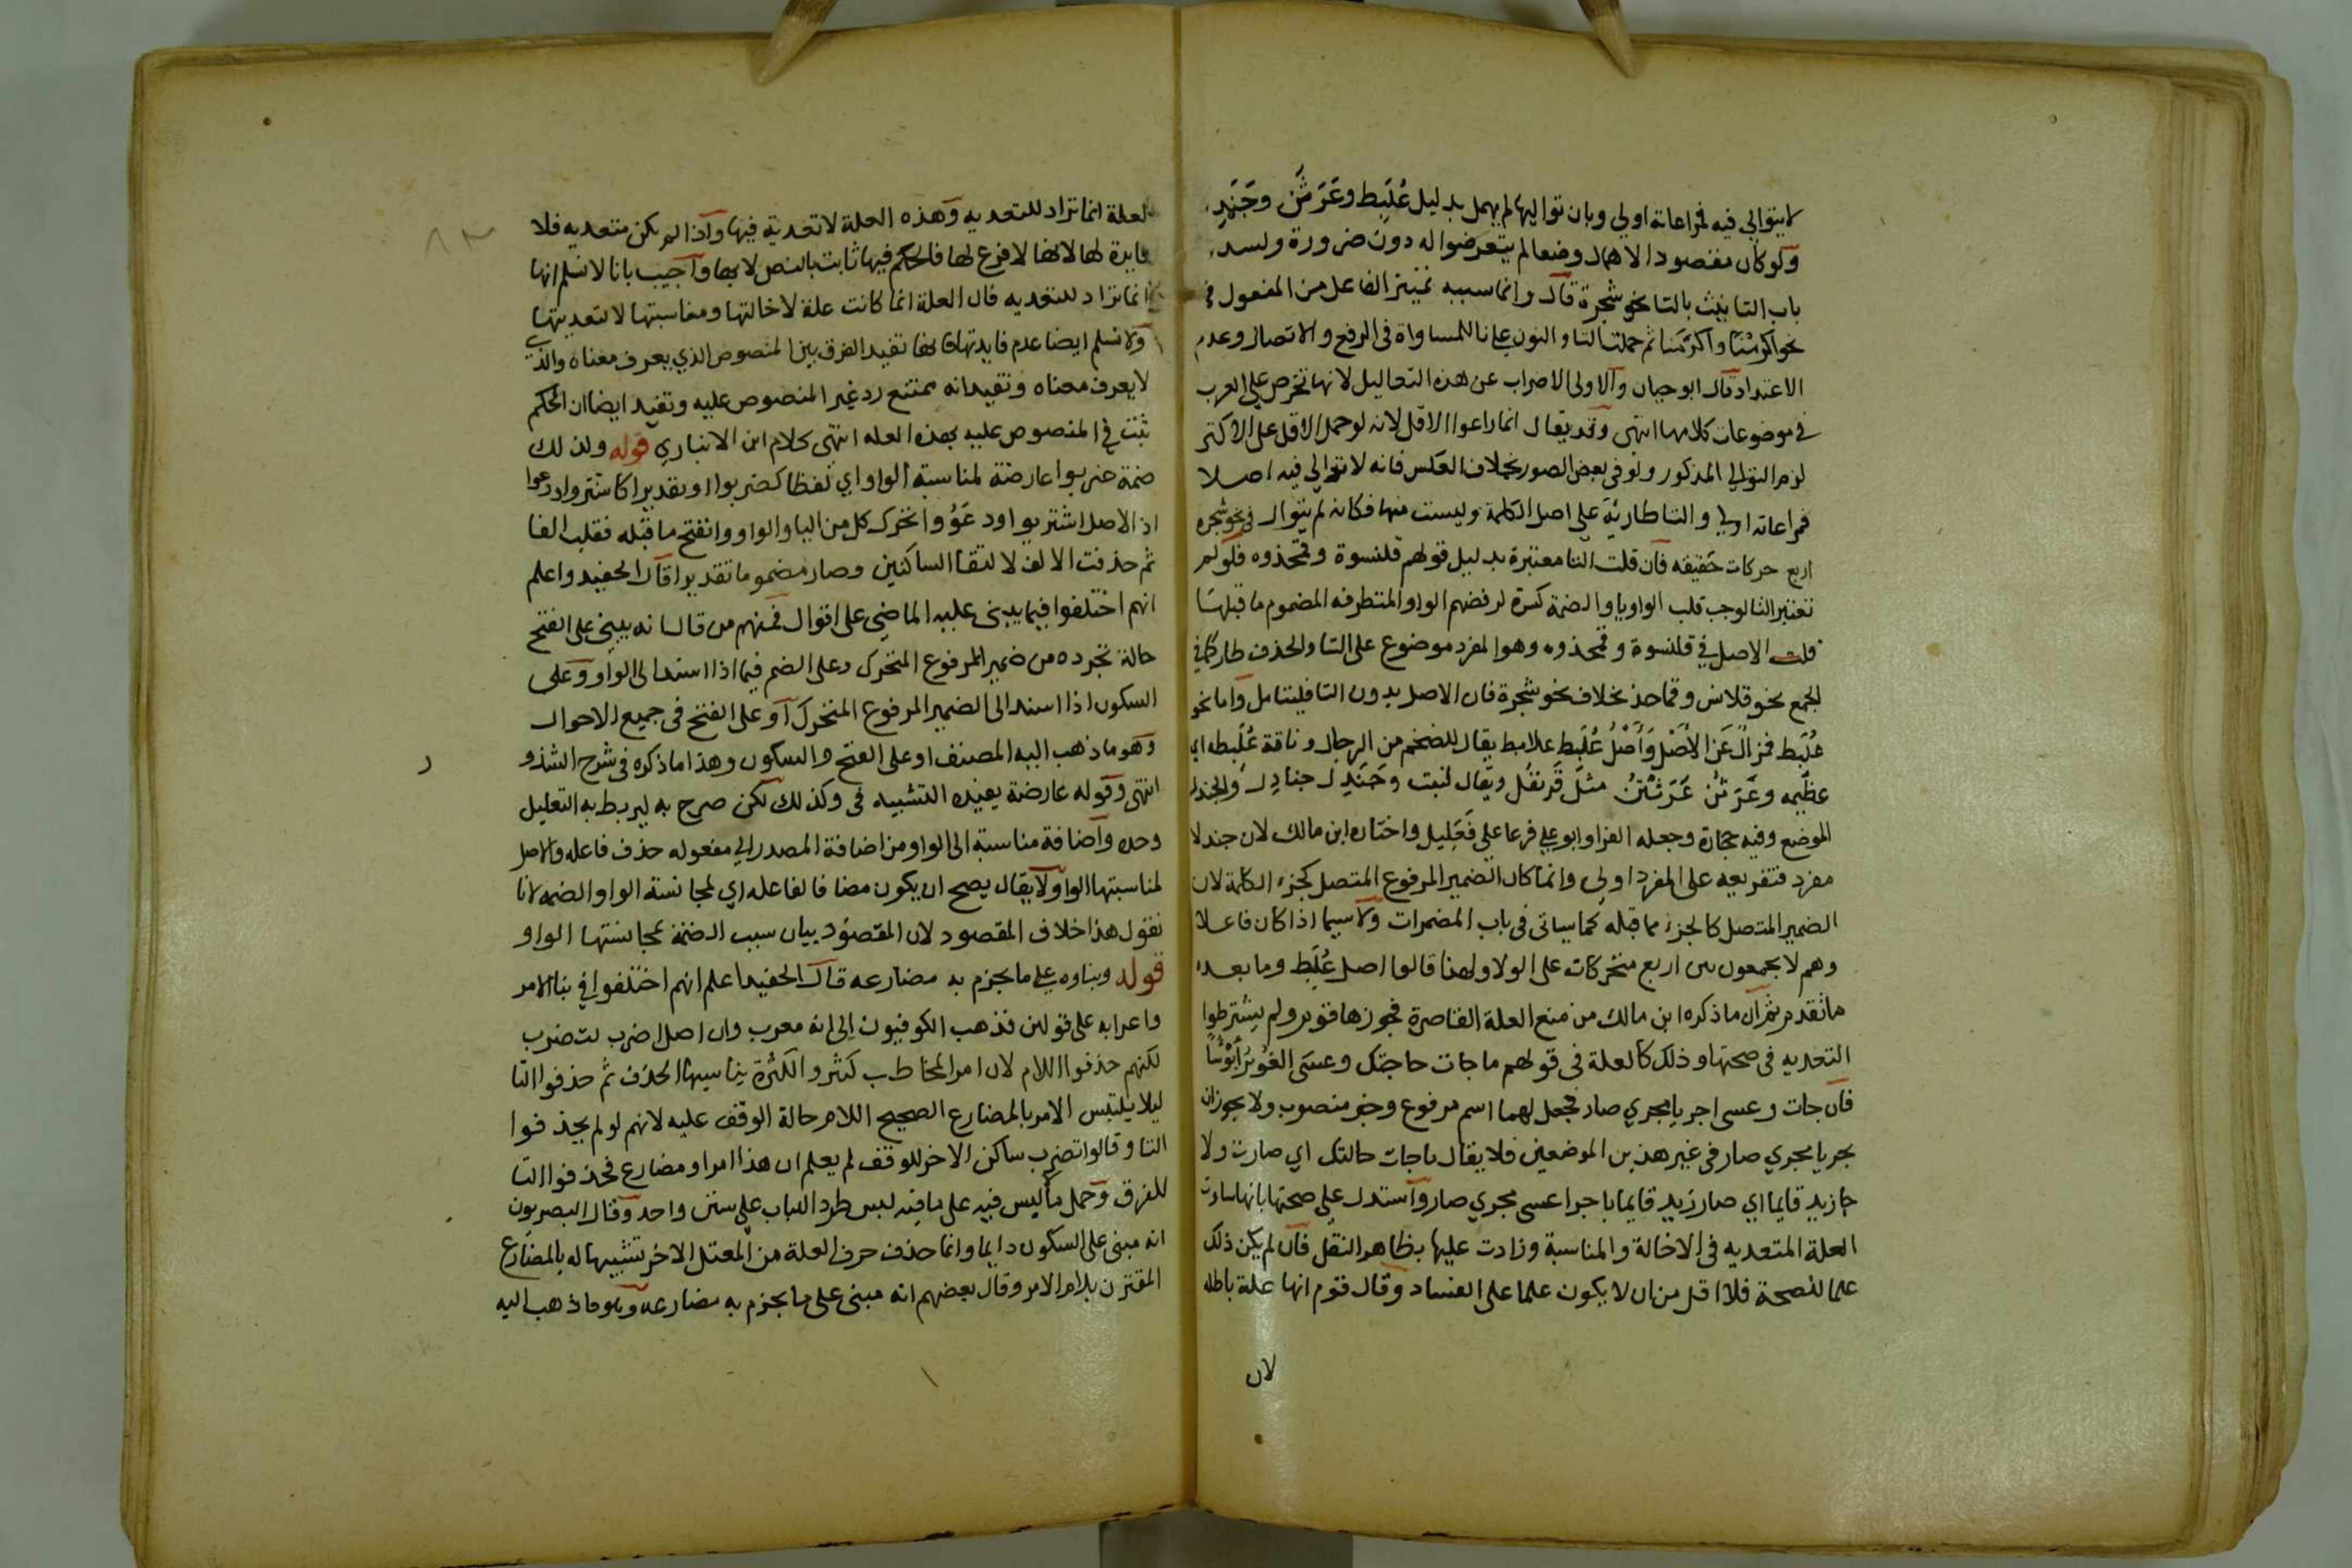 لا يتوالي فيه فمراعاته اولي وبان تواليها لم يهمل بدليل عُلَبِط وعَرَتُن وجَنَدِل
ولو كان مقصود الاهمال وضعا لم يتعرضوا له دون ضرورة ولسد
باب التانيث بالتا نحو شجرة قال وانما سببه تمييز الفاعل من المفعول في
نحو اكرمْنَا واكرمَنا ثم حملت التا والنون علي نا للمساواة في الرفع والاتصال وعدم
الاعتداد قال ابو حيان والاولي الاضراب عن هذه التعاليل لانها تخرص علي العرب
في موضوعات كلامها انتهي وقد يقال انما راعوا الاقل لانه لو حمل الاقل علي الاكثر
لزم التوالي المذكور ولو في بعض الصور بخلاف العكس فانه لا توالي فيه اصلا
فمراعاته اولي والتا طارئة علي اصل الكلمة وليست منها فكانه لم يتوال في نحو شجره
اربع حركات حقيقه فان قلت التا معتبرة بدليل قولهم قلنسوة وقمحدوه فلو لم
تعتبر التا لوجب قلب الواو يا والضمة كسرة لرفضهم الواو المتطرفه المضموم ما قبلها
قلت الاصل في قلنسوة وقمحدوه وهو المفرد موضوع علي التا والحذف طار كما في
الجمع نحو قلاس وقماحد بخلاف نحو شجرة فان الاصل بدون التا فليتامل واما نحو
عُلَبِط فمزال عن الاصل واصل عُلَبِط علابط يقال للضخم من الرجال وناقة عُلَبِطه اي
عظيمه وعَرَتُن عَرَنْتُن مثل قَرنفُل ويقال لنبت وجَنَدِل جنادِل والجندل
الموضع وفيه حجارة وجعله الفرا وابو علي فرعا علي فَعَلِيل واختاره ابن مالك لان جندلا
مفرد فتفريعه علي المفرد اولي وانما كان الضمير المرفوع المتصل كجزء الكلمة لان
الضمير المتصل كالجزء مما قبله كما سياتي في باب المضمرات ولا سيما اذا كان فاعلا
وهم لا يجمعون بين اربع متحركات علي الولا ولهذا قالوا اصل عُلَبِط وما بعده
ما تقدم ثم ان ما ذكره ابن مالك من منع العلة القاصرة فجوزها قوم ولم يشترطوا
التعديه في صحتها وذلك كالعلة في قولهم ما جات حاجتك وعسي الغوير أبؤسًا
فان جات وعسي اجريا مجري صار فجعل لهما اسم مرفوع وخبر منصوب ولا يجوز ان
يجريا مجري صار في غير هذين الموضعين فلا يقال ما جات حالتك اي صارت ولا
جا زيد قايما اي صار زيد قايما باجرا عسي مجري صار واستدل علي صحتها بانها ساوت
العلة المتعديه في الاخالة والمناسبة وزادت عليها بظاهر النقل فان لم يكن ذلك
علما للصحة فلا اقل من ان لا يكون علما علي الفساد وقال قوم انها علة باطله
لان
العلة انما تراد للتعديه وهذه العلة لا تعدية فيها واذا لم يكن متعديه فلا
فايدة لها لانها لا فرع لها فالحكم فيها ثابت بالنص لا بها واجيب بانا لا نسلم انها
انما تراد للتعديه فان العلة انما كانت علة لاخالتها ومناسبتها لا لتعديتها
ولا نسلم ايضا عدم فايدتها فانها تفيد الفرق بين المنصوص الذي يعرف معناه والذي
لا يعرف معناه وتفيد انه ممتنع رد غير المنصوص عليه وتفيد ايضا ان الحكم
ثبت في المنصوص عليه بهذه العله انتهي كلام ابن الانباري قوله ولذلك
ضمة ضربوا عارضة لمناسبة الواو اي لفظا كضربوا او تقديرا كاشتروا ودعوا
اذ الاصل اشتريوا ودعَوُوا تحرك كل من اليا والواو وانفتح ما قبله فقلب الفا
ثم حذفت الالف لالتقا الساكنين وصار مضموما تقديرا قال الحفيد واعلم
انهم اختلفوا فيما يبني عليه الماضي علي اقوال فمنهم من قال انه يبني علي الفتح
حالة تجرده من ضمير المرفوع المتحرك وعلي الضم فيما اذا اسند الي الواو وعلي
السكون اذا اسند الي الضمير المرفوع المتحرك او علي الفتح في جميع الاحوال
وهو ما ذهب اليه المصنف او علي الفتح والسكون وهذا ما ذكره في شرح الشذور
انتهي وقوله عارضة يفيده التشبيه في وكذلك لكن صرح به ليربط به التعليل
وحده واضافة مناسبة الي الواو من اضافة المصدر الي مفعوله حذف فاعله والاصل
لمناسبتها الواو ولا يقال يصح ان يكون مضافا لفاعله اي لمجانسة الواو الضمه لانا
نقول هذا خلاف المقصود لان المقصود بيان سبب الضمة لمجانستها الواو
قوله وبناوه علي ما يجزم به مضارعه قال الحفيد اعلم انهم اختلفوا في بنا الامر
واعرابه علي قولين فذهب الكوفيون الي انه معرب وان اصل اضرب لتضرب
لكنهم حذفوا اللام لان امر المخاطب كثر والكثرة يناسبها الحذف ثم حذفوا التا
ليلا يلتبس الامر بالمضارع الصحيح اللام حالة الوقف عليه لانهم لو لم يحذفوا
التا وقالوا تضرب ساكن الاخر للوقف لم يعلم ان هذا امر او مضارع فحذفوا التا
للفرق وحمل ما ليس فيه علي ما فيه لبس طرد اللباب علي سنن واحد وقال البصريون
انه مبني علي السكون دايما وانما حذف حرف العلة من المعتل الاخر تشبيها له بالمضارع
المقترن بلام الامر وقال بعضهم انه مبني علي ما يجزم به مضارعه وهو ما ذهب اليه